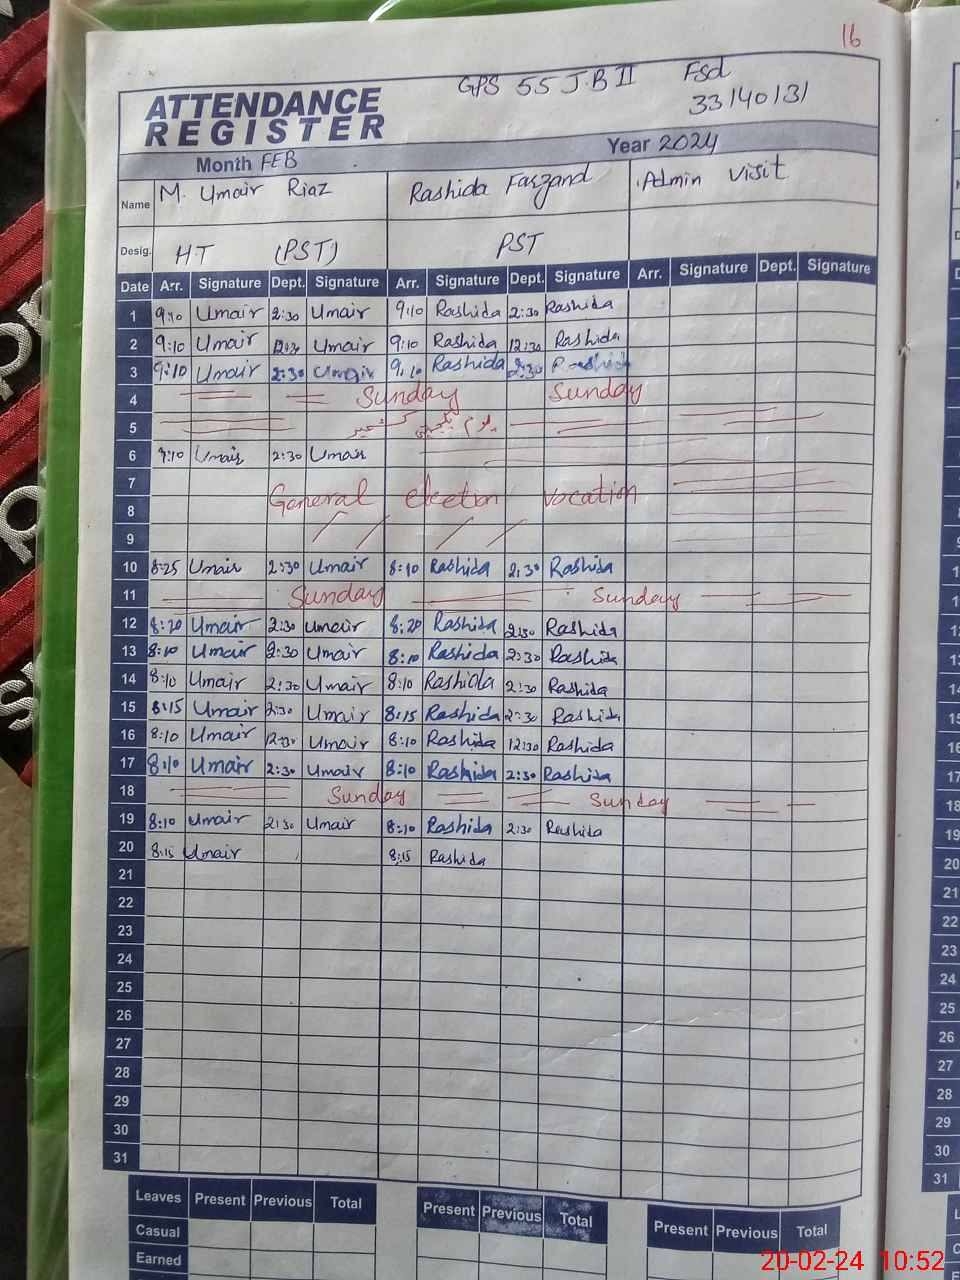 16
GPS 55 J.B II Fsd
33140131
ATTENDANCE
REGISTER
Month FEB Year 2024
Name M. Umair Riaz Rashida Farzand Admin visit
Desig. H.T (PST) PST
Date Arr. Signature Dept. Signature Arr. Signature Dept. Signature Arr. Signature Dept. Signature
1 9:10 Umair 2:30 Umair 9:10 Rashida 2:30 Rashida
2 9:10 Umair 12:30 Umair 9:10 Rashida 12:30 Rashida
3 9:10 Umair 2:30 Umair 9:10 Rashida 2:30 Rashida
4 Sunday Sunday
5 یوم یکجہتی کشمیر
6 9:10 Umair 2:30 Umair
7
8 General election vacation
9
10 8:25 Umair 2:30 Umair 8:10 Rashida 2:30 Rashida
11 Sunday Sunday
12 8:20 Umair 2:30 Umair 8:20 Rashida 2:30 Rashida
13 8:10 Umair 2:30 Umair 8:10 Rashida 2:30 Rashida
14 8:10 Umair 2:30 Umair 8:10 Rashida 2:30 Rashida
15 8:15 Umair 2:30 Umair 8:15 Rashida 2:30 Rashida
16 8:10 Umair 12:30 Umair 8:10 Rashida 12:30 Rashida
17 8:10 Umair 2:30 Umair 8:10 Rashida 2:30 Rashida
18 Sunday Sunday
19 8:10 Umair 2:30 Umair 8:10 Rashida 2:30 Rashida
20 8:15 Umair 8:15 Rashida
21
22
23
24
25
26
27
28
29
30
31
Leaves Present Previous Total Present Previous Total Present Previous Total
Casual
Earned
20-02-24 10:52